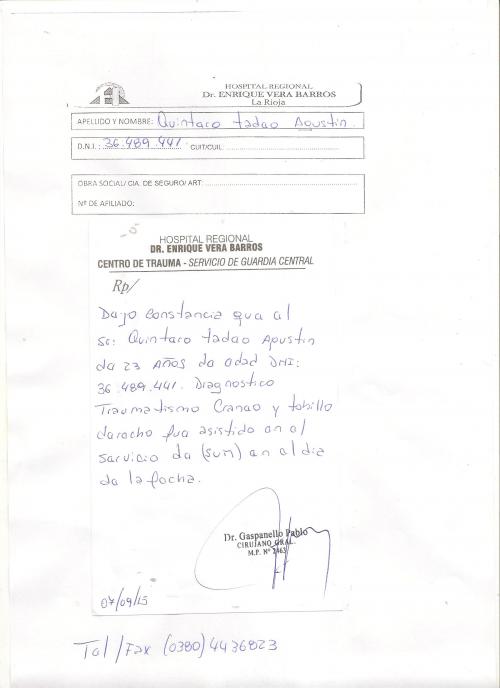 HOSPITAL REGIONAL
Dr. ENRIQUE VERA BARROS
La Rioja
APELLIDO Y NOMBRE: Quintero Tadeo Agustin.
D.N.I.: 36.489.441 CUIT/CUIL:
OBRA SOCIAL/ CIA. DE SEGURO/ ART:
Nº DE AFILIADO:
HOSPITAL REGIONAL
DR. ENRIQUE VERA BARROS
CENTRO DE TRAUMA - SERVICIO DE GUARDIA CENTRAL
Rp/
Dejo constancia que el
Sr: Quintero Tadeo Agustin
de 23 AÑOS de edad DNI:
36.489.441. Diagnostico
Traumatismo Craneo y tobillo
derecho fue asistido en el
servicio de (sum) en el dia
de la fecha.
Dr. Gaspanello Pablo
CIRUJANO GRAL.
M.P. Nº 2463
07/09/15
Tel/Fax (0380) 4436823